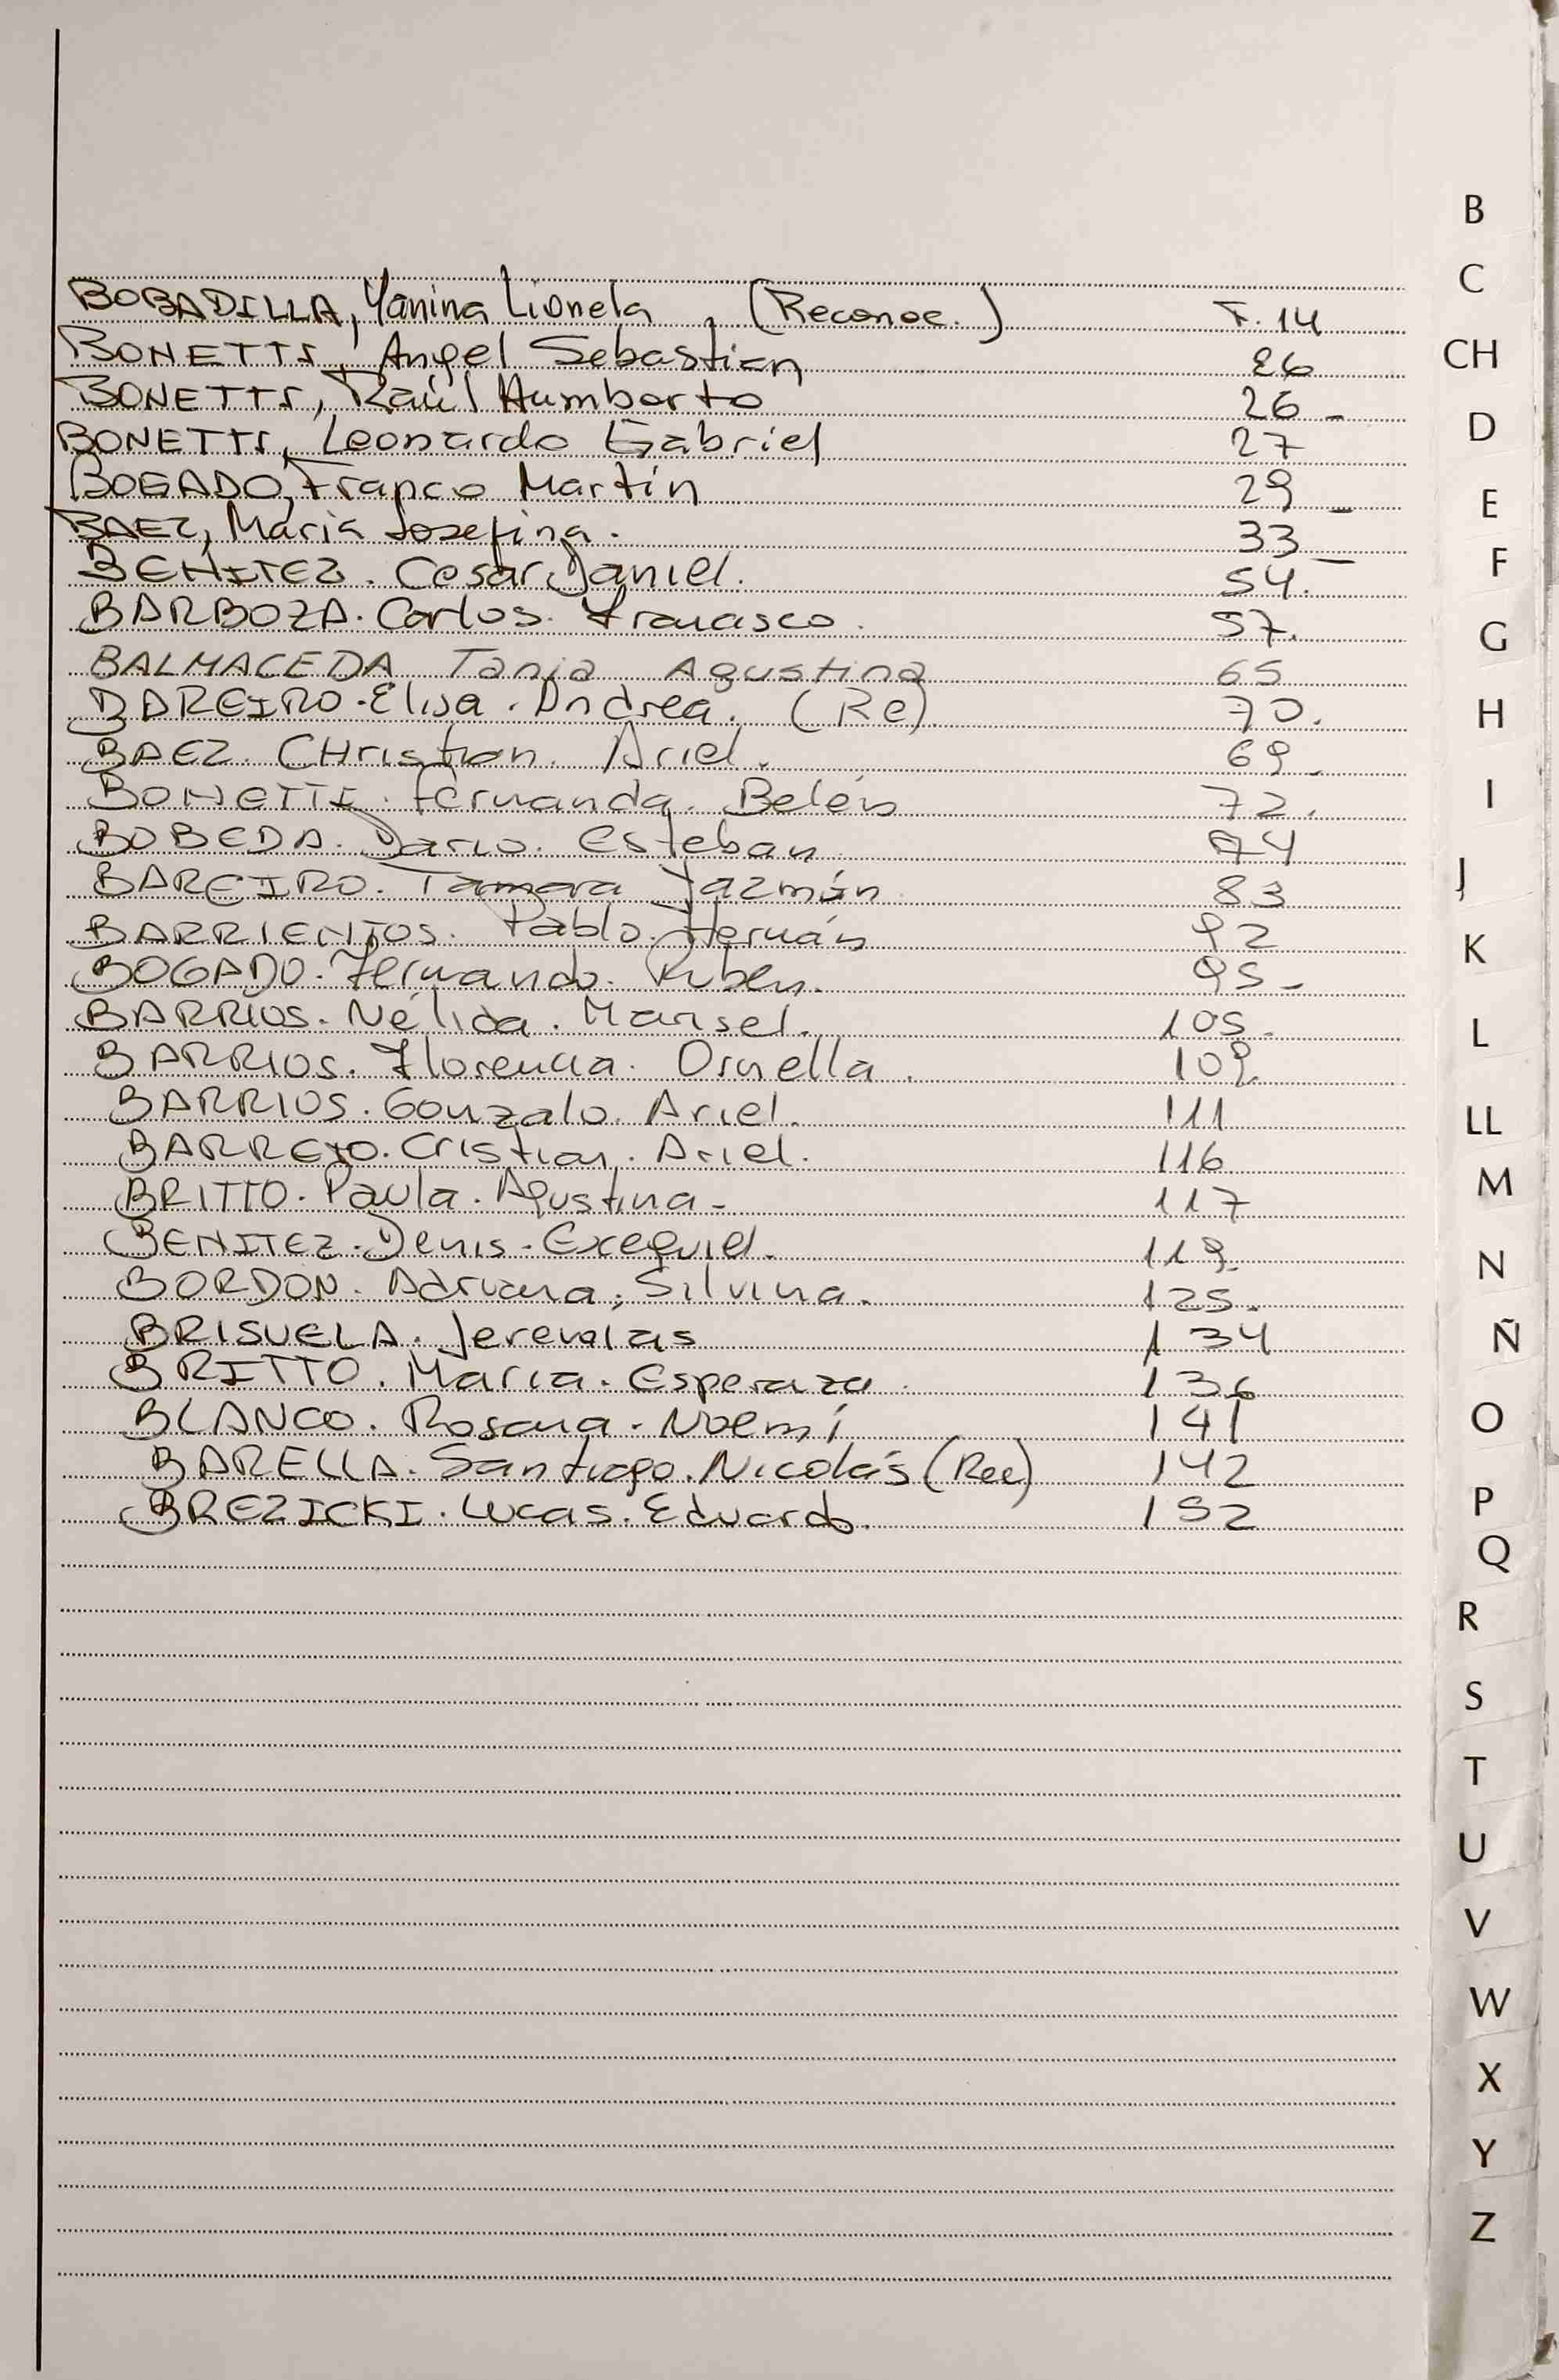 BOBADILLA, Yanina Lionela (Reconoc.) F. 14
BONETTI, Angel Sebastian 26
BONETTI, Raúl Humberto 26 -
BONETTI, Leonardo Gabriel 27
BOGADO, Franco Martín 29 -
BAEZ, Maria Josefina. 33 -
BENITEZ. Cesar Daniel. 54.
BARBOZA. Carlos. Francisco. 57.
BALMACEDA Tania Agustina 65
BAREIRO. Elisa. Andrea. (Re) 70.
BAEZ. CHristian. Ariel. 69.
BONETTI. Fernanda. Belén 72.
BOBEDA. Dario. Esteban. 74
BAREIRO. Tamara Jazmín. 83
BARRIENTOS. Pablo. Hernán 92
BOGADO. Fernando. Ruben. 95 -
BARRIOS. Nélida. Marisel. 105.
BARRIOS. Florencia. Ornella. 109.
BARRIOS. Gonzalo. Ariel. 111
BARRETO. Cristian. Ariel. 116
BRITTO. Paula. Agustina - 117
BENITEZ. Denis. Exequiel. 119.
BORDON. Adriana, Silvina. 125.
BRISUELA. 134
BRITTO. Maria. Esperanza. 136
BLANCO. Rosana. Noemí 141
BARELLA. Santiago. Nicolás (Rec) 142
BREZICKI. Lucas. Eduardo. 152
B
C
CH
D
E
F
G
H
I
J
K
L
LL
M
N
Ñ
O
P
Q
R
S
T
U
V
W
X
Y
Z